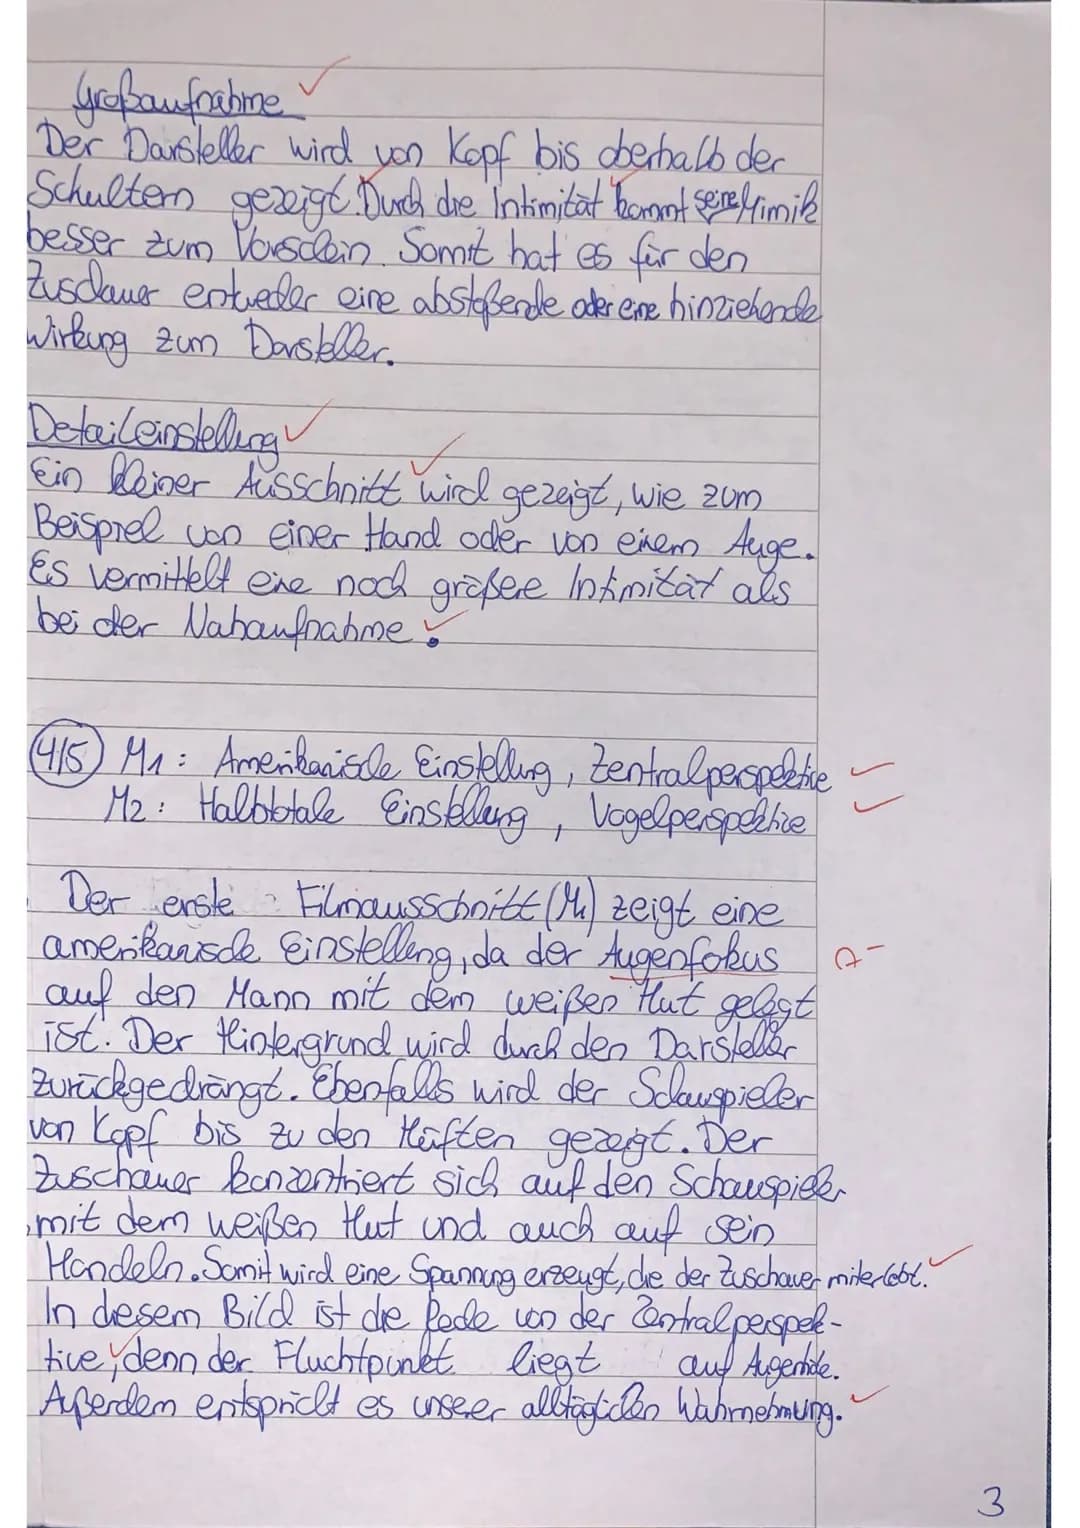 Großaufnahme
Der Darsteller wird von Kopf bis oberhalb der
Schultern gezeigt. Durch die Intimität kommt seine Mimik
besser zum Vorschein. Somit hat es für den
Zuschauer entweder eine abstoßende oder eine hinziehende
Wirkung zum Darsteller.
Detaileinstellung
Ein kleiner Ausschnitt wird gezeigt, wie zum
Beispiel von einer Hand oder von einem Auge.
Es vermittelt eine noch größere Intimität als
bei der Nahaufnahme.
4/5 M1: Amerikanische Einstellung, Zentralperspektive
M2: Halbtotale Einstellung, Vogelperspektive
Der erste Filmausschnitt (M1) zeigt eine
amerikanische Einstellung, da der Augenfokus
auf den Mann mit dem weißen Hut gelegt
ist. Der Hintergrund wird durch den Darsteller
zurückgedrängt. Ebenfalls wird der Schauspieler
von Kopf bis zu den Hüften gezeigt. Der
Zuschauer konzentriert sich auf den Schauspieler
mit dem weißen Hut und auch auf sein
Handeln. Somit wird eine Spannung erzeugt, die der Zuschauer miterlebt.
In diesem Bild ist die Rede von der Zentralperspek-
tive, denn der Fluchtpunkt liegt auf Augenhöhe.
Außerdem entspricht es unserer alltäglichen Wahrnehmung.
3